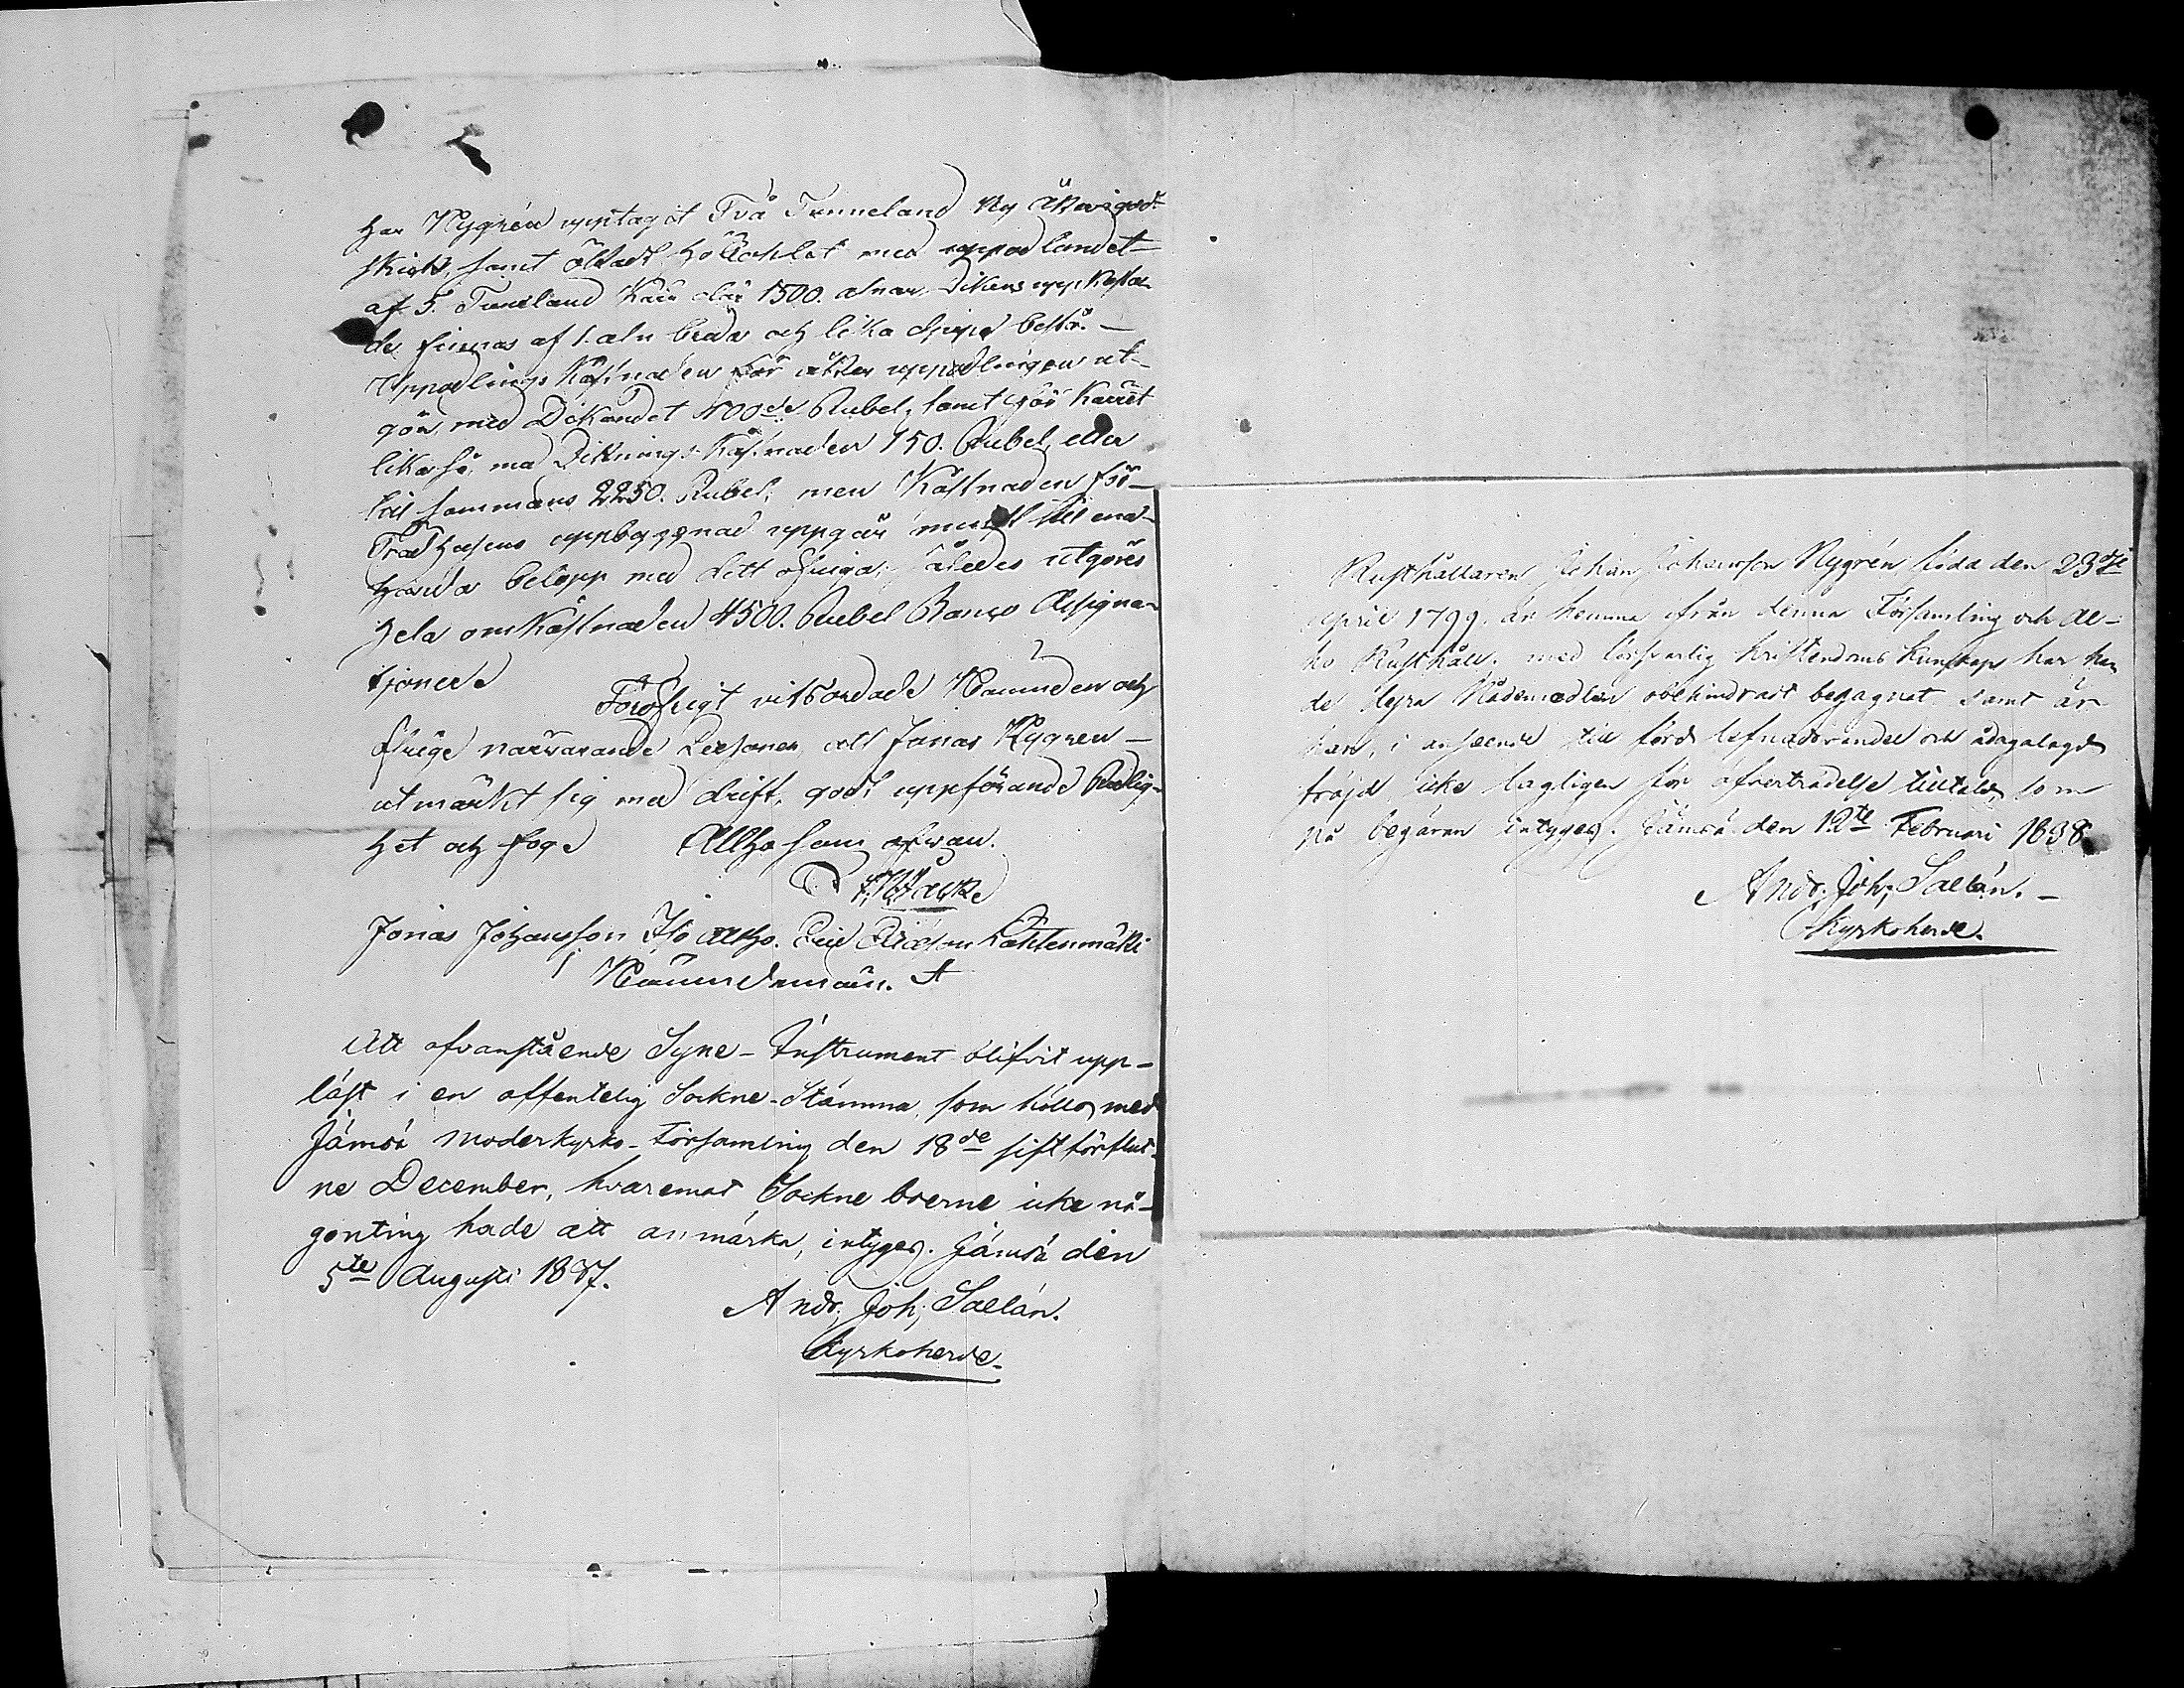 har Nygrén upptagit Två Tunneland Ny åker i godt
skick, samt med upodlandet
af 5. Tuneland Kärr där 1500. alnar Diken uppkasta-
de finnas af 1. aln breda och lika djupa
Uppodlings Kåstnaden för åker uppodlingen ut-
gör, med Dikandet Rubel, samt för Kärret
likaså med Diknings Kåstnaden 750. Rubel, eller
till sammans 2250. Rubel, men Kåstnaden för
uppbyggnad uppgår till ena-
handa belopp med ditt öfriga, således utgöres
hela omkåstnaden 4500. Rubel Banco Assigna-
tjoner
Föröfrigt vitsordade Nämnden och
öfrige närvarande Personer att Jonas Nygren
utmärkt sig med drift, godt uppförande Redlig-
het och Allt som ofvan.
Jonas Johansson Iso Alho. Eric Ericsson Lahtenmäki
Nämndemän.
Att ofvanstående Syne-Instrument blifvit upp-
läst i en offentelig Sockne-Stämma, som hölls med
Jämsä Moderkyrko-Församling den 18de sist förflut-
ne December, hvaremot Sockneboerne icke nå-
gonting hade att anmärka, intyges. Jämsä den
5te Augusti 1837.
Andr. Joh; Sallén.
Kyrkoherde.
Rusthållaren Johan Johansson Nygrén, föda den 23dje
april 1799. är hemma ifrån denna Församling och Al-
ho Rusthåll. med försvarlig Kristendoms Kunskap har han
de dyra Nådemedlen obehindradt begagnat. Samt är
han, i anseende till förd lefnadsvandel och ådagalagd
fräjd icke lagligen för öfverträdelse tilltald, som
på begäran intyges. Jämsä den 12te Februari 1838
Andr. Joh; Sallén.
Kyrkoherde.